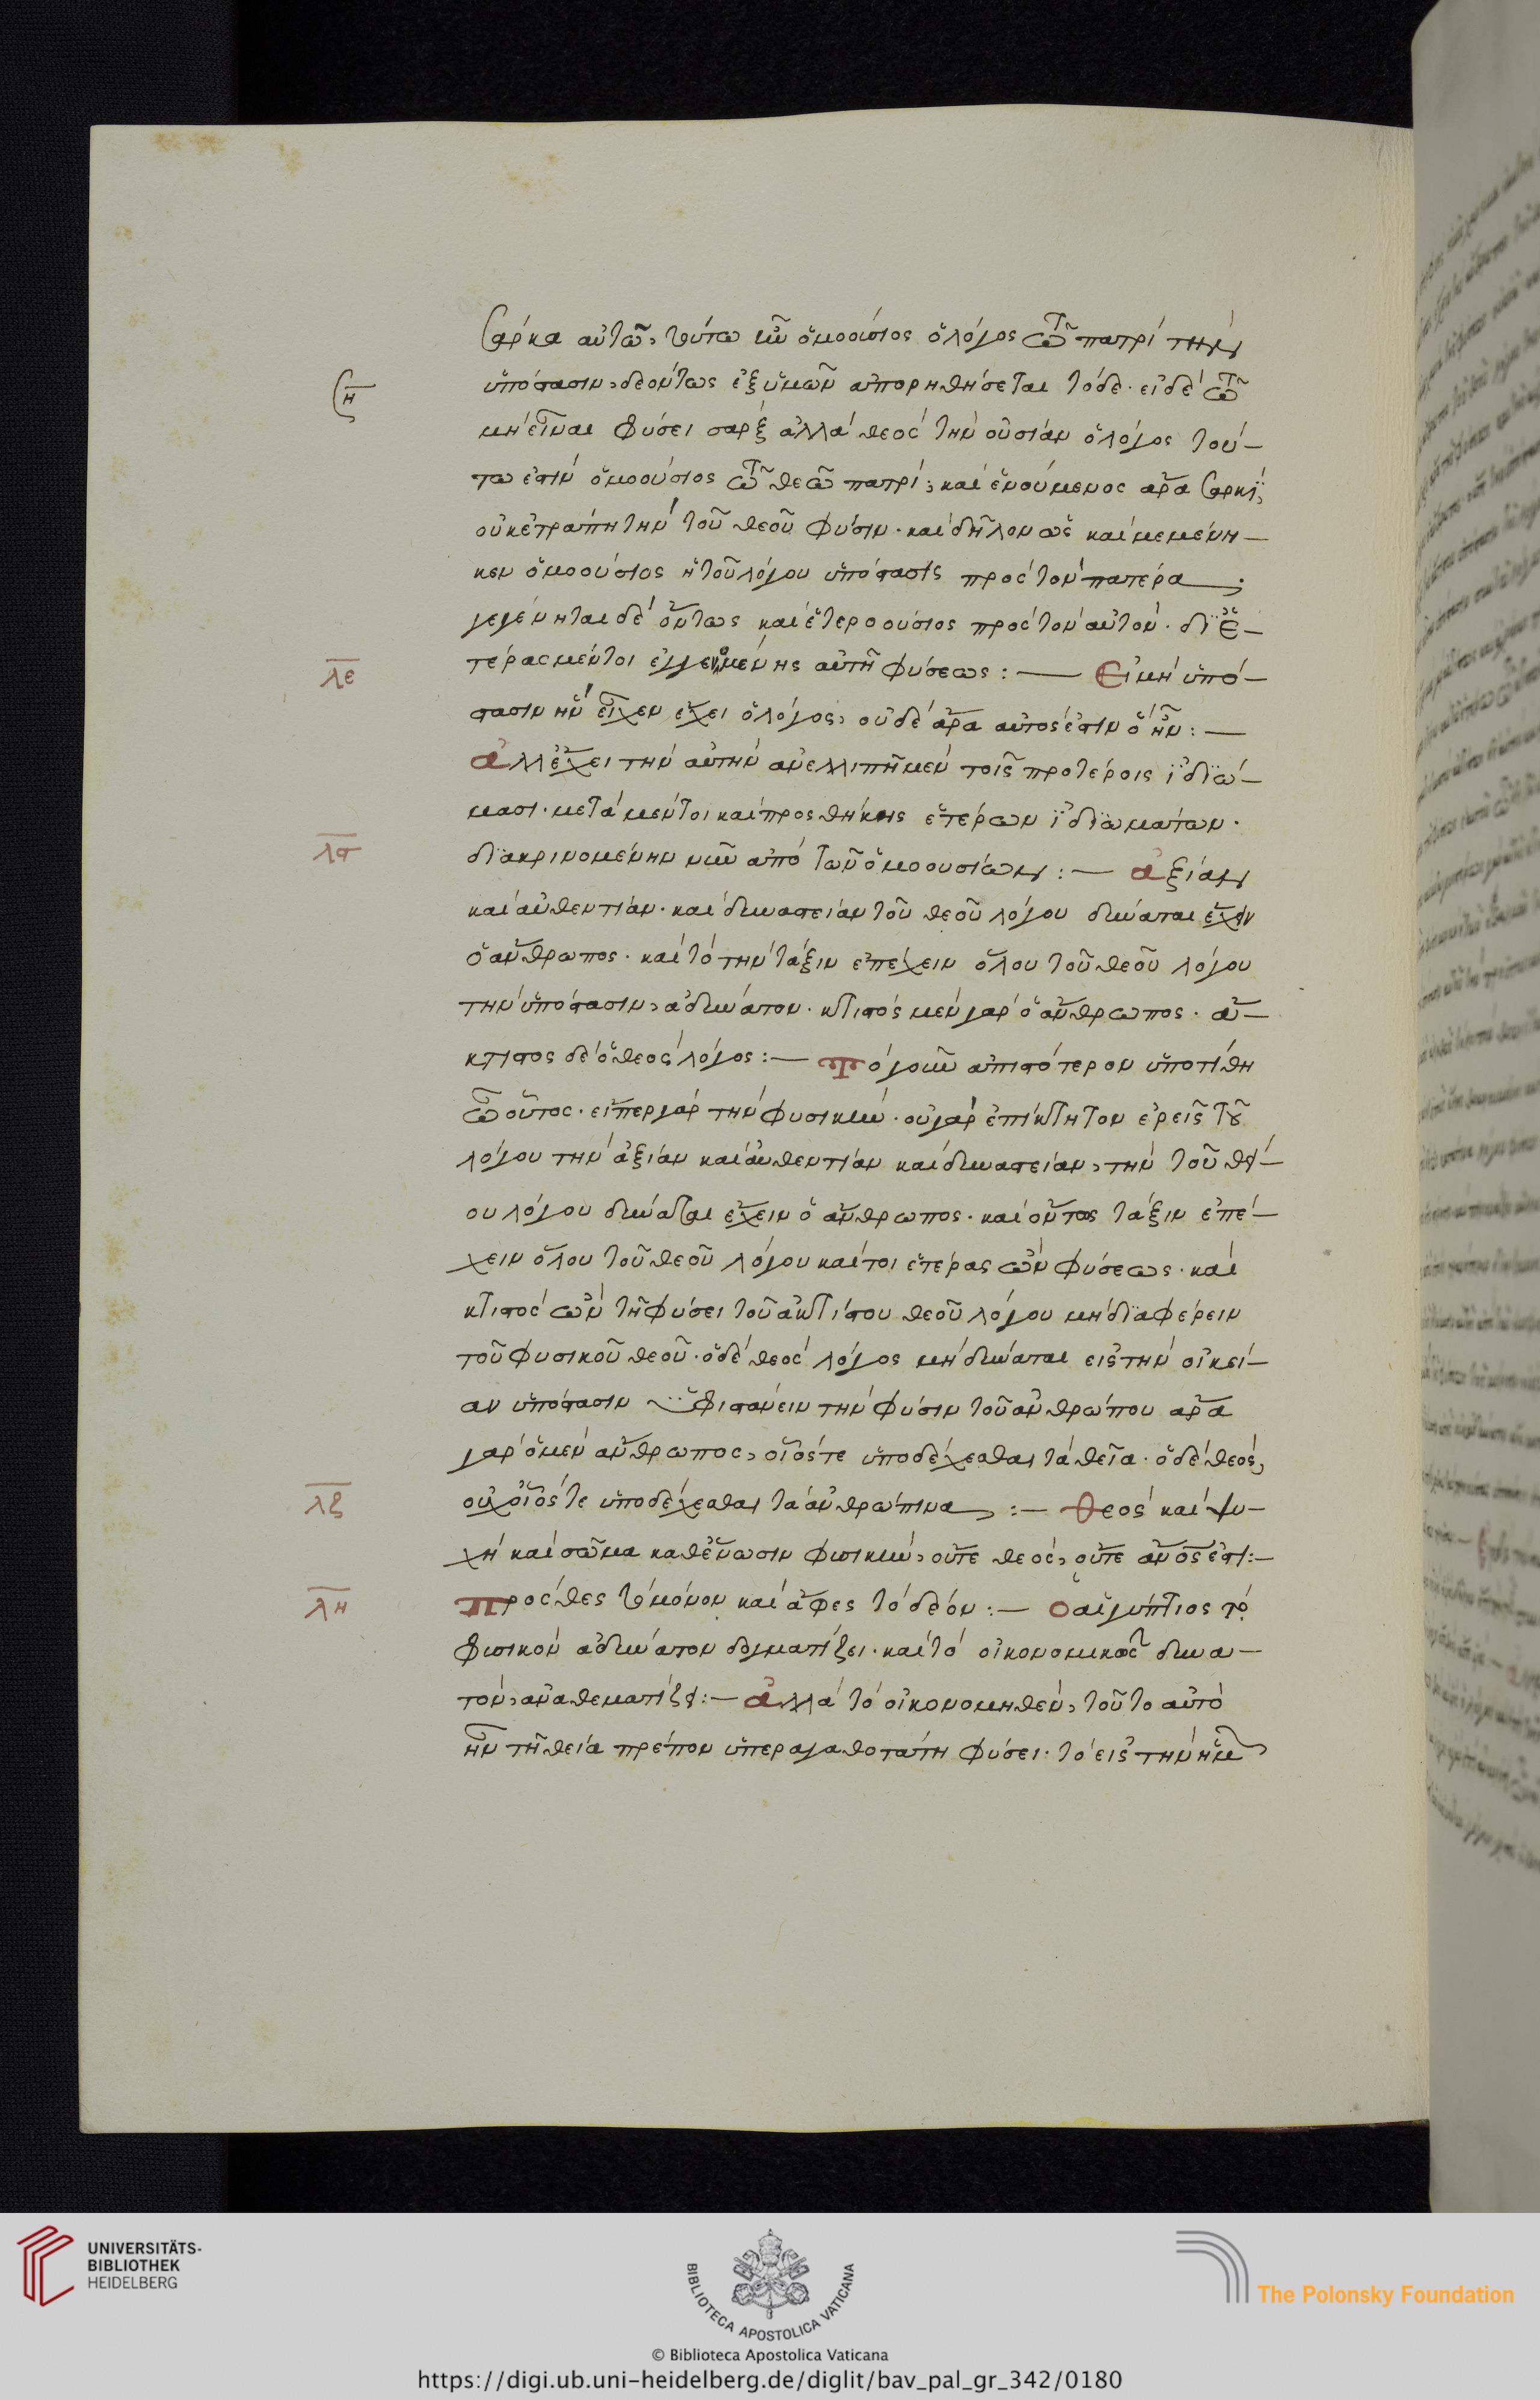 σάρκα αὐτῶ, τούτω νῦν ὁμοούσιος ὁ λόγος τῶ πατρὶ τὴν
ὑπόστασιν, δεόντως ἐξ ὑμῶν ἀπορηθήσεται τόδε. εἰ δὲ τῶ
ση
μὴ εἶναι φύσει σαρξ ἀλλὰ θεὸς τὴν οὐσίαν ὁ λόγος τού–
τω ἐστὶν ὁμοούσιος τῶ θεῶ πατρί, καὶ ἑνούμενος ἄρα σαρκὶ,
οὐκ ἐτράπη τὴν τοῦ θεοῦ φύσιν. καὶ δῆλον ὡς καὶ μεμένη–
κεν ὁμοούσιος ἡ τοῦ λόγου ὑπόστασις πρὸς τὸν πατέρα.
γεγένηται δὲ ὄντως καὶ ἑτεροούσιος πρὸς τὸν αὐτὸν. δϊ ἑ–
τέρας μέντοι ἐγγενομένης αὐτῆ φύσεως :— Εἰ μὴ ὑπό–
λε
στασιν ἣν εἶχεν ἔχει ὁ λόγος, οὐδὲ ἄρα αὐτός ἐστιν ὃ ἦν :—
ἀλλ ἔχει τὴν αὐτὴν ἀνελλιπῆ μὲν τοῖς προτέροις ἰδϊώ–
μασι. μετὰ μέντοι καὶ προσθήκης ἑτέρων ἰδϊωμάτων.
διακρινομένην νῦν ἀπὸ τῶν ὁμοουσίων :— ἀξίαν
λϛ
καὶ αὐθεντίαν. καὶ δυναστείαν τοῦ θεοῦ λόγου δύναται ἔχειν
ὁ ἄνθρωπος. καὶ τὸ τὴν τάξιν ἐπέχειν ὅλου τοῦ θεοῦ λόγου
τὴν ὑπόστασιν, ἀδύνατον. κτιστὸς μὲν γὰρ ὁ ἄνθρωπος. ἄ–
κτιστος δὲ ὁ θεὸς λόγος :— Τὸ γοῦν ἀπιστότερον ὑποτίθη
τῶ οὗτος. εἴπερ γὰρ τὴν φυσικὴν. οὐ γὰρ ἐπίκτητον ἐρεῖς τοῦ
λόγου τὴν ἀξίαν καὶ αὐθεντίαν καὶ δυναστείαν, τὴν τοῦ θεί–
ου λόγου δύναται ἔχειν ὁ ἄνθρωπος. καὶ οὗτος τάξιν ἐπέ–
χειν ὅλου τοῦ θεοῦ λόγου καίτοι ἑτέρας ὢν φύσεως. καὶ
κτιστὸς ὢν τῆ φύσει τοῦ ἀκτίστου θεοῦ λόγου μὴ διαφέρειν
τοῦ φυσικοῦ θεοῦ. ὁ δὲ θεὸς λόγος μὴ δύναται εἰς τὴν οἰκεί–
αν ὑπόστασιν ὑφιστάνειν τὴν φύσιν τοῦ ἀνθρώπου ἄρα
γὰρ ὁ μὲν ἄνθρωπος, οἷός τε ὑποδέχεσθαι τὰ θεῖα. ὁ δὲ θεὸς,
οὐχ οἷός τε ὑποδέχεσθαι τὰ ἀνθρώπινα :— Θεὸς καὶ ψυ–
λζ
χὴ καὶ σῶμα καθ ἕνωσιν φυσικὴν, οὔτε θεὸς, οὔτε ἄνος ἐστι :—
Πρόσθες τὸ μόνον καὶ ἄφες τὸ δέον :— Ο αἰγύπτιος τὸ
λη
φυσικὸν ἀδύνατον δογματίζει. καὶ τὸ οἰκονομικῶς δυνα–
τὸν, ἀναθεματίζει :— ἀλλὰ τὸ οἰκονομηθὲν, τοῦτο αὐτὸ
ἦν τῆ θεία πρέπον ὑπεραγαθοτάτη φύσει. τὸ εἰς τὴν ἡμ
UNIVERSITÄTS-
BIBLIOTHEK
HEIDELBERG
BIBLIOTECA APOSTOLICA VATICANA
The Polonsky Foundation
© Biblioteca Apostolica Vaticana
https://digi.ub.uni-heidelberg.de/diglit/bav_pal_gr_342/0180